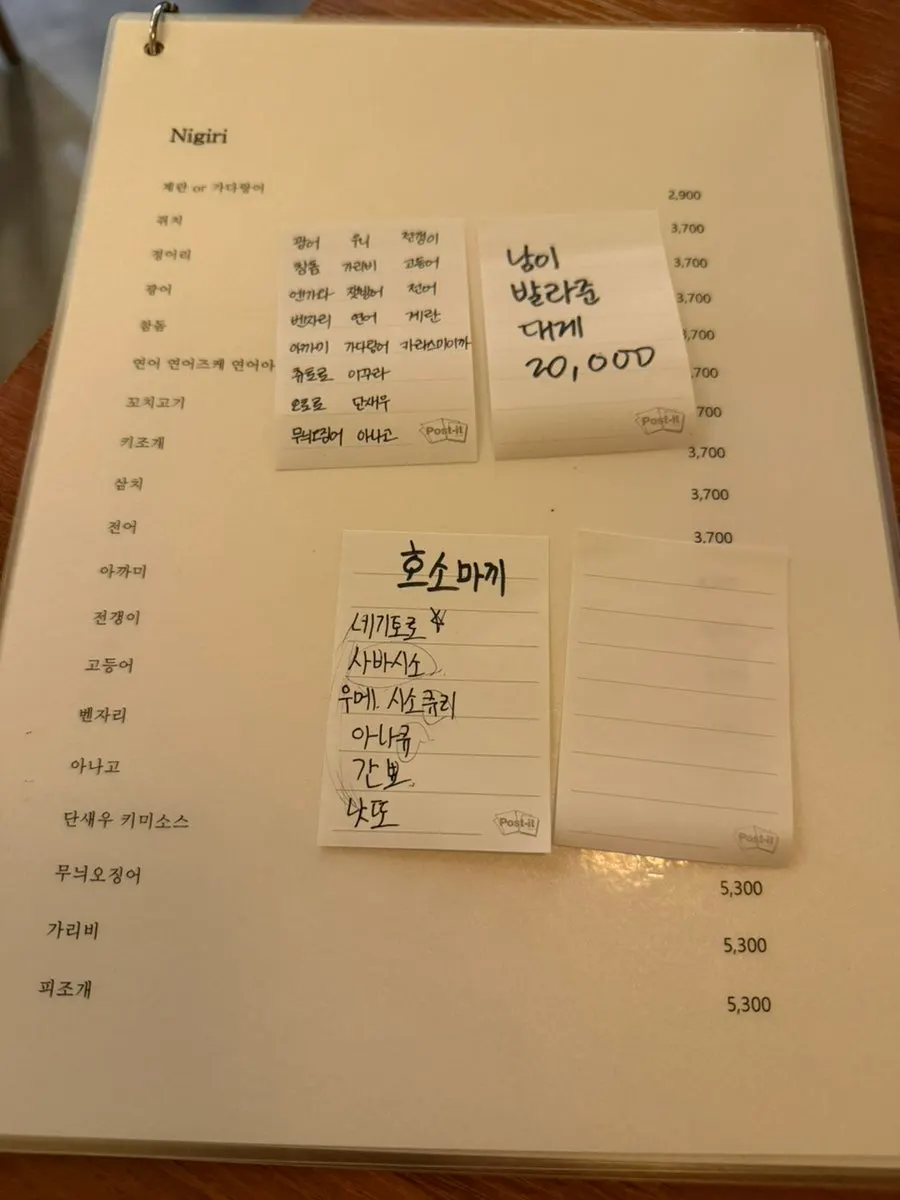 Nigiri
계란 or 가다랑어 2,900
쥐치 3,700
정어리 3,700
광어 3,700
참돔 3,700
연어 연어즈케 연어아 ,700
꼬치고기 700
키조개 3,700
삼치 3,700
전어 3,700
아까미
전갱이
고등어
벤자리
아나고
단새우 키미소스
무늬오징어 5,300
가리비 5,300
피조개 5,300
광어 우니 전갱이
참돔 가리비 고등어
엔가와 잿방어 전어
벤자리 연어 계란
아까미 가다랑어 카라스미이까
쥬토로 이꾸라
오토로 단새우
무늬오징어 아나고
Post-it
냥이
발라준
대게
20,000
Post-it
호소마끼
네기토로
사바시소
우메 시소큐리
아나큐
간뾰
낫또
Post-it
Post-it